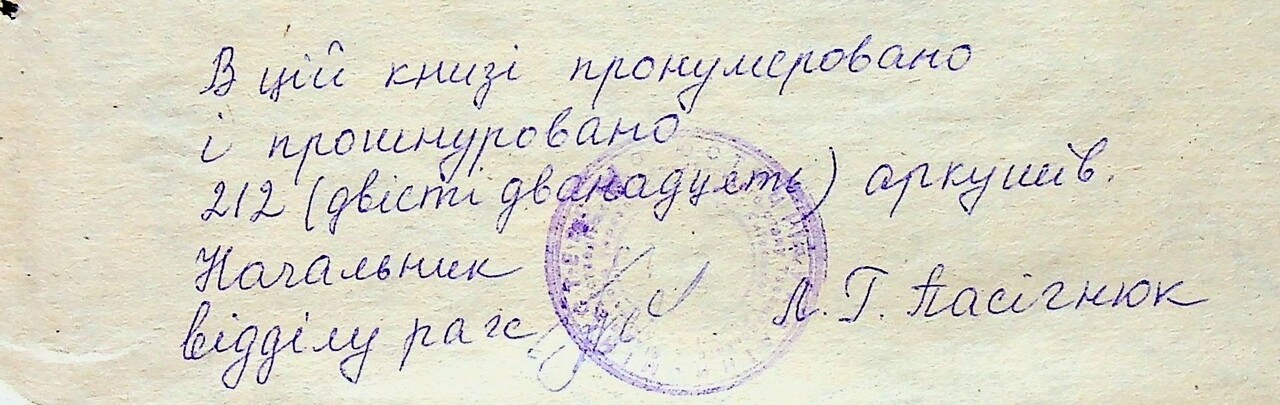 В цій книзі пронумеровано
і прошнуровано
212 (двісті дванадцять) аркушів.
Начальник
відділу рагс Л. Г. Пасігнюк